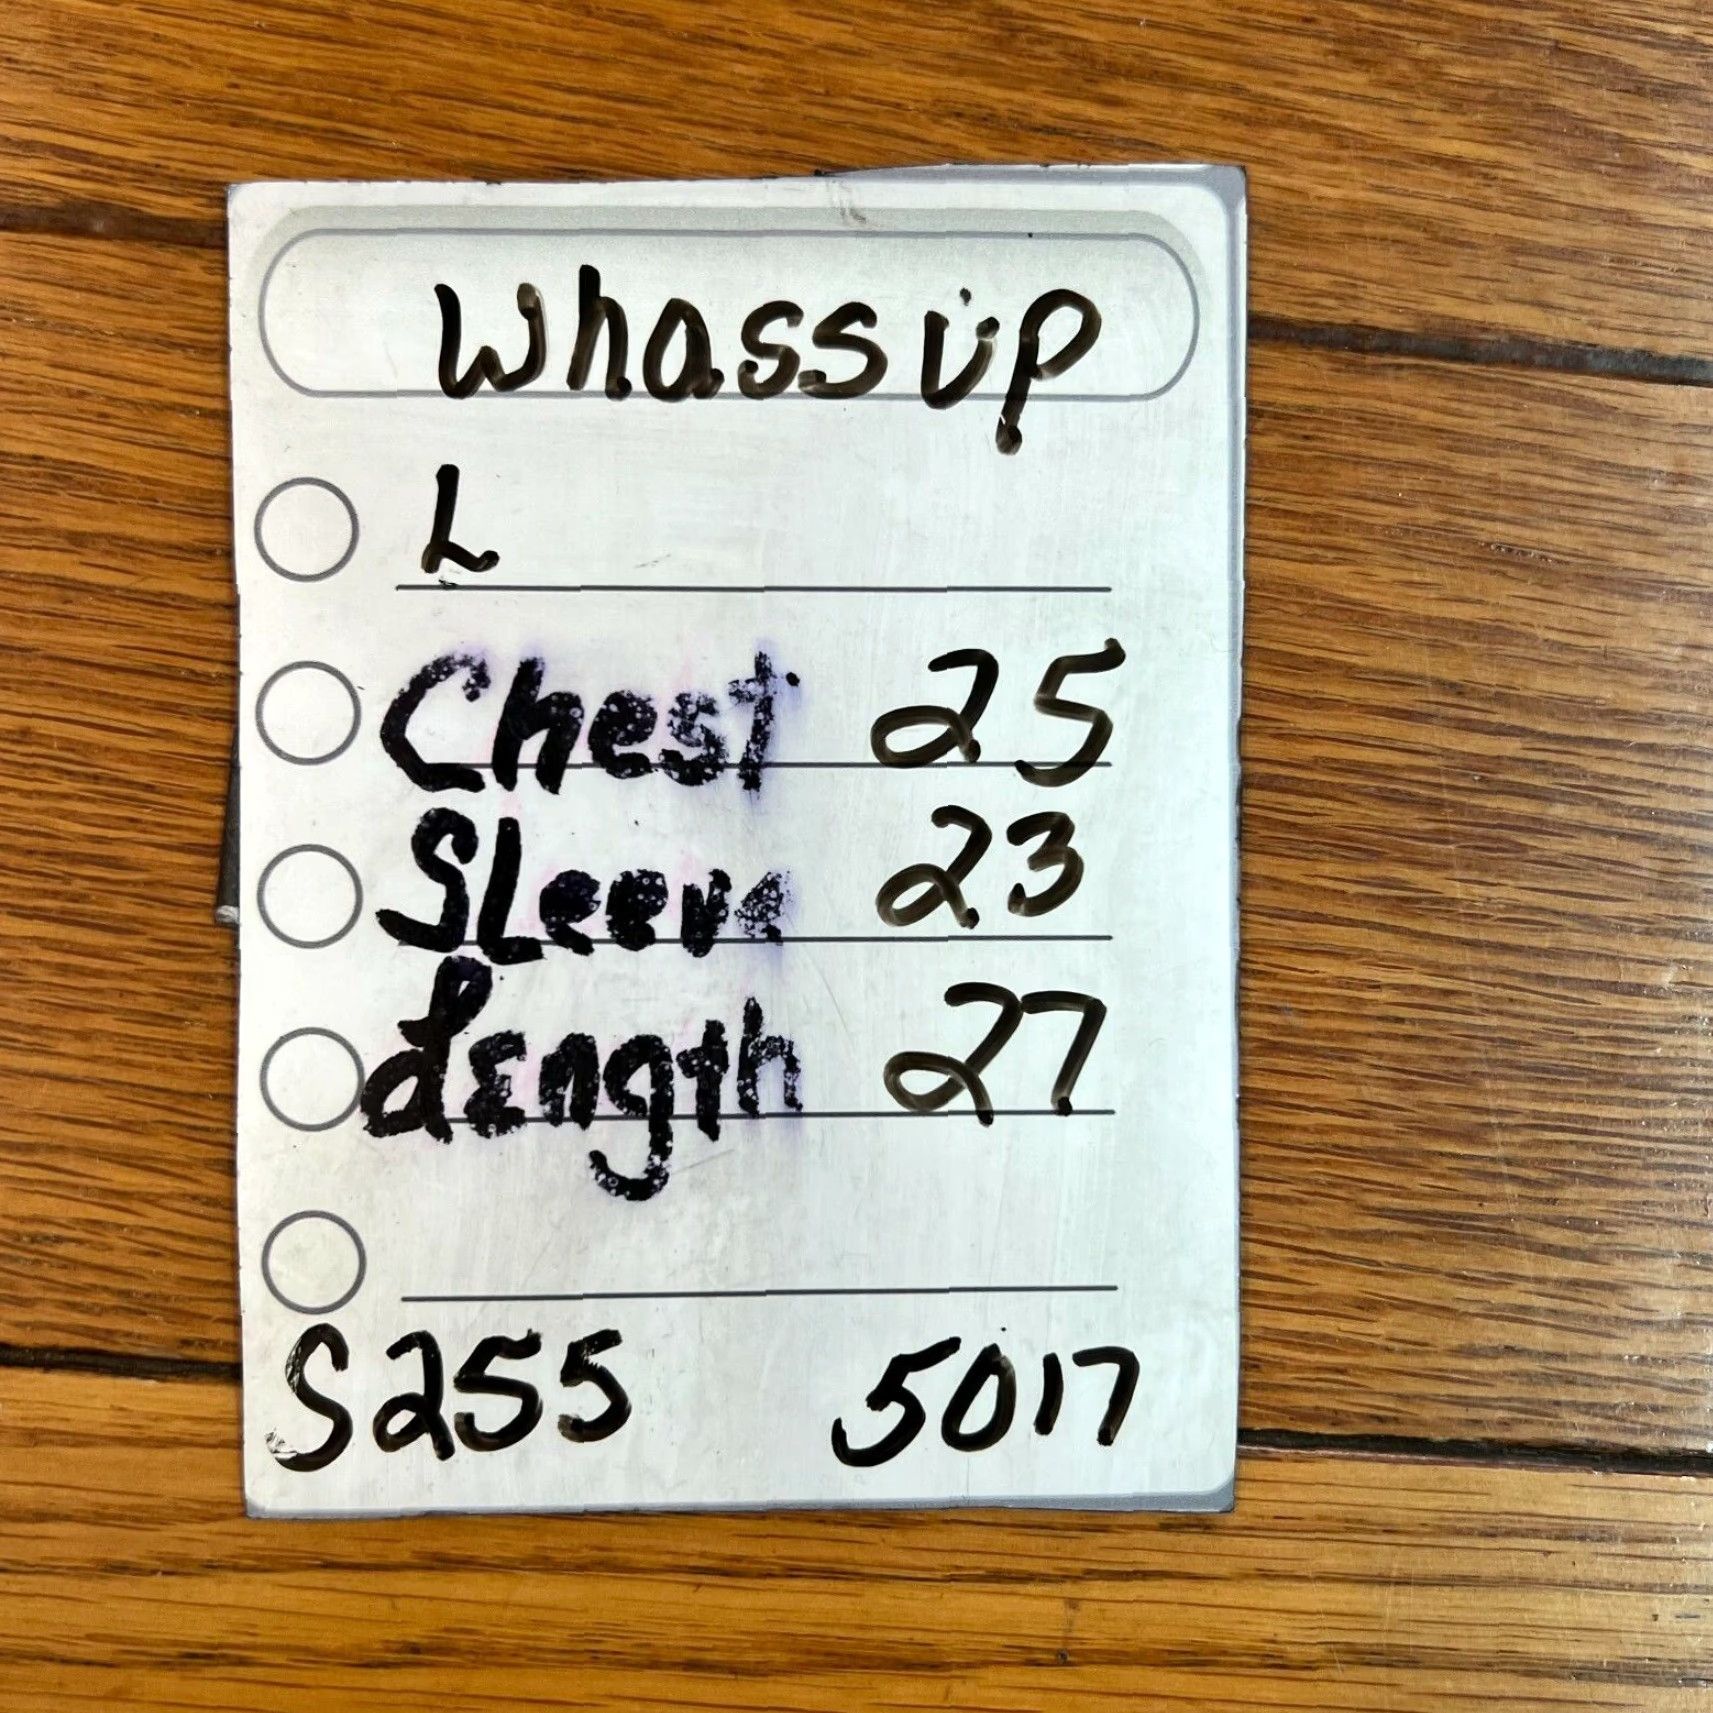 Whassup
L
Chest 25
SLeeve 23
Length 27
S255 5017